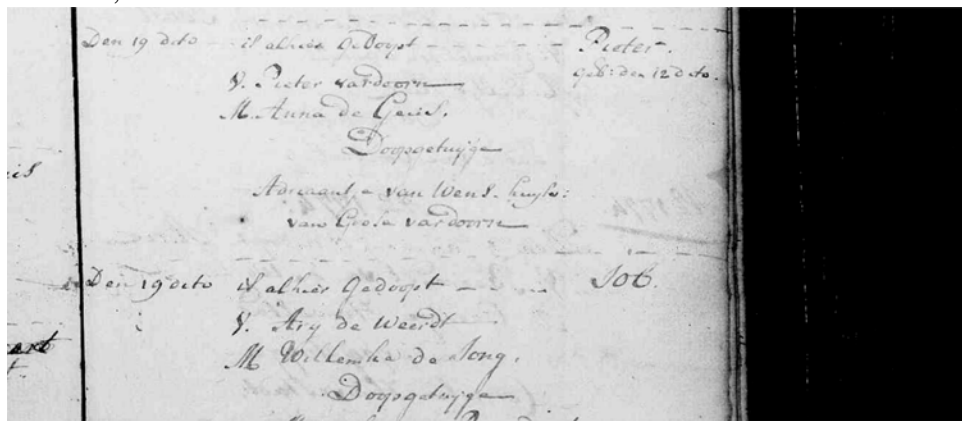 Den 19 dito is alhier Gedoopt Pieter.
geb: den 12 dito.
V. Pieter vardoorn
M. Anna de Geus.
Doopsgetuijge
Adriaantje van Wens. huijsv:
van Goose vardoorn
is
Den 19 dito is alhier Gedoopt Job.
V. Ary de Weerdt
M Willemke de Jong.
Doopsgetuijge